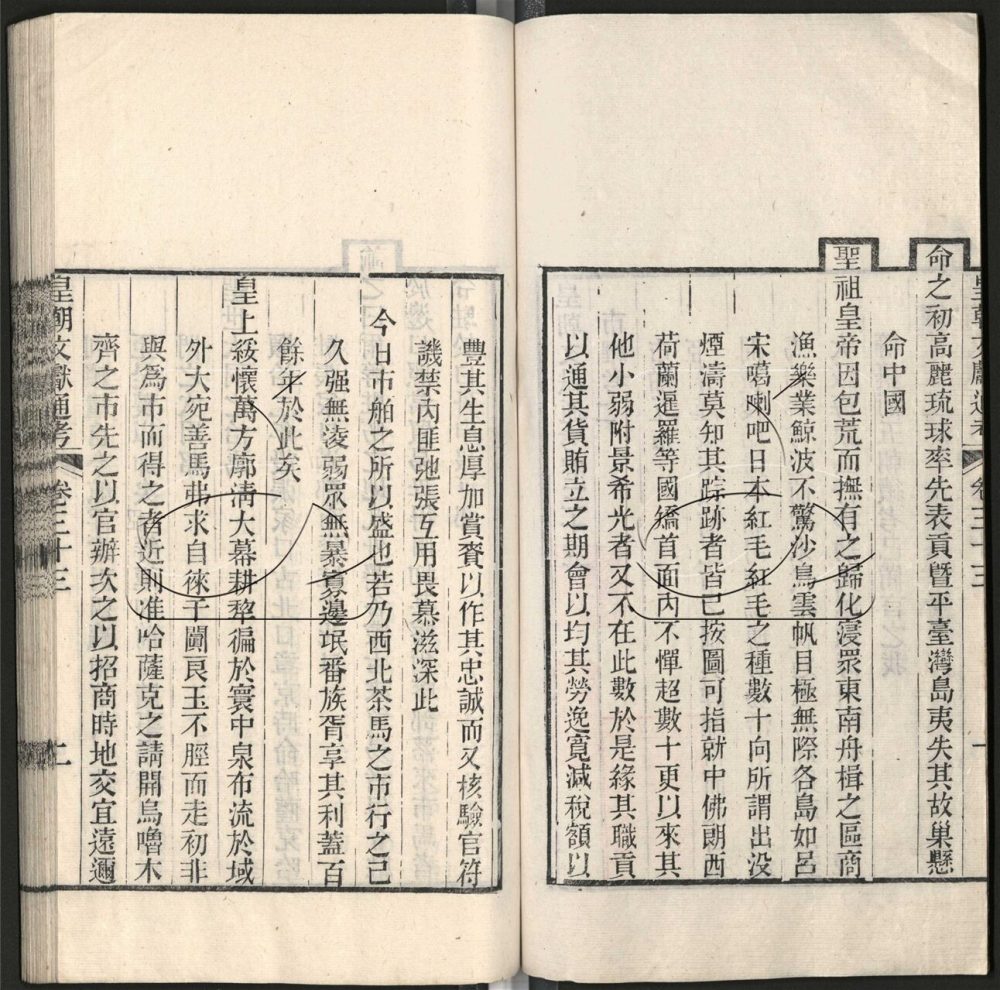 命之初高麗琉球率先表貢曁平臺灣島夷失其故巢懸
命中國
聖祖皇帝因包荒而撫有之歸化寖眾東南舟楫之區商
漁樂業鯨波不驚沙鳥雲帆目極無際各島如呂
宋噶喇吧日本紅毛紅毛之種數十向所謂出没
煙濤莫知其踪跡者皆已按圖可指就中佛朗西
荷蘭暹羅等國矯首面內不憚超數十更以來其
他小弱附景希光者又不在此數於是緣其職貢
以通其貨賄立之期會以均其勞逸寬減稅額以
豐其生息厚加賞賚以作其忠誠而又核驗官符
譏禁內匪弛張互用畏慕滋深此
今日市舶之所以盛也若乃西北茶馬之市行之已
久强無淩弱眾無暴寡邊氓番族胥享其利蓋百
餘年於此矣
皇上綏懷萬方廓淸大幕耕犂徧於寰中泉布流於域
外大宛善馬弗求自徠于闐良玉不脛而走初非
與爲市而得之者近則准哈薩克之請開烏嚕木
齊之市先之以官辦次之以招商時地交宜遠邇
皇朝文獻通考
卷三十三
二